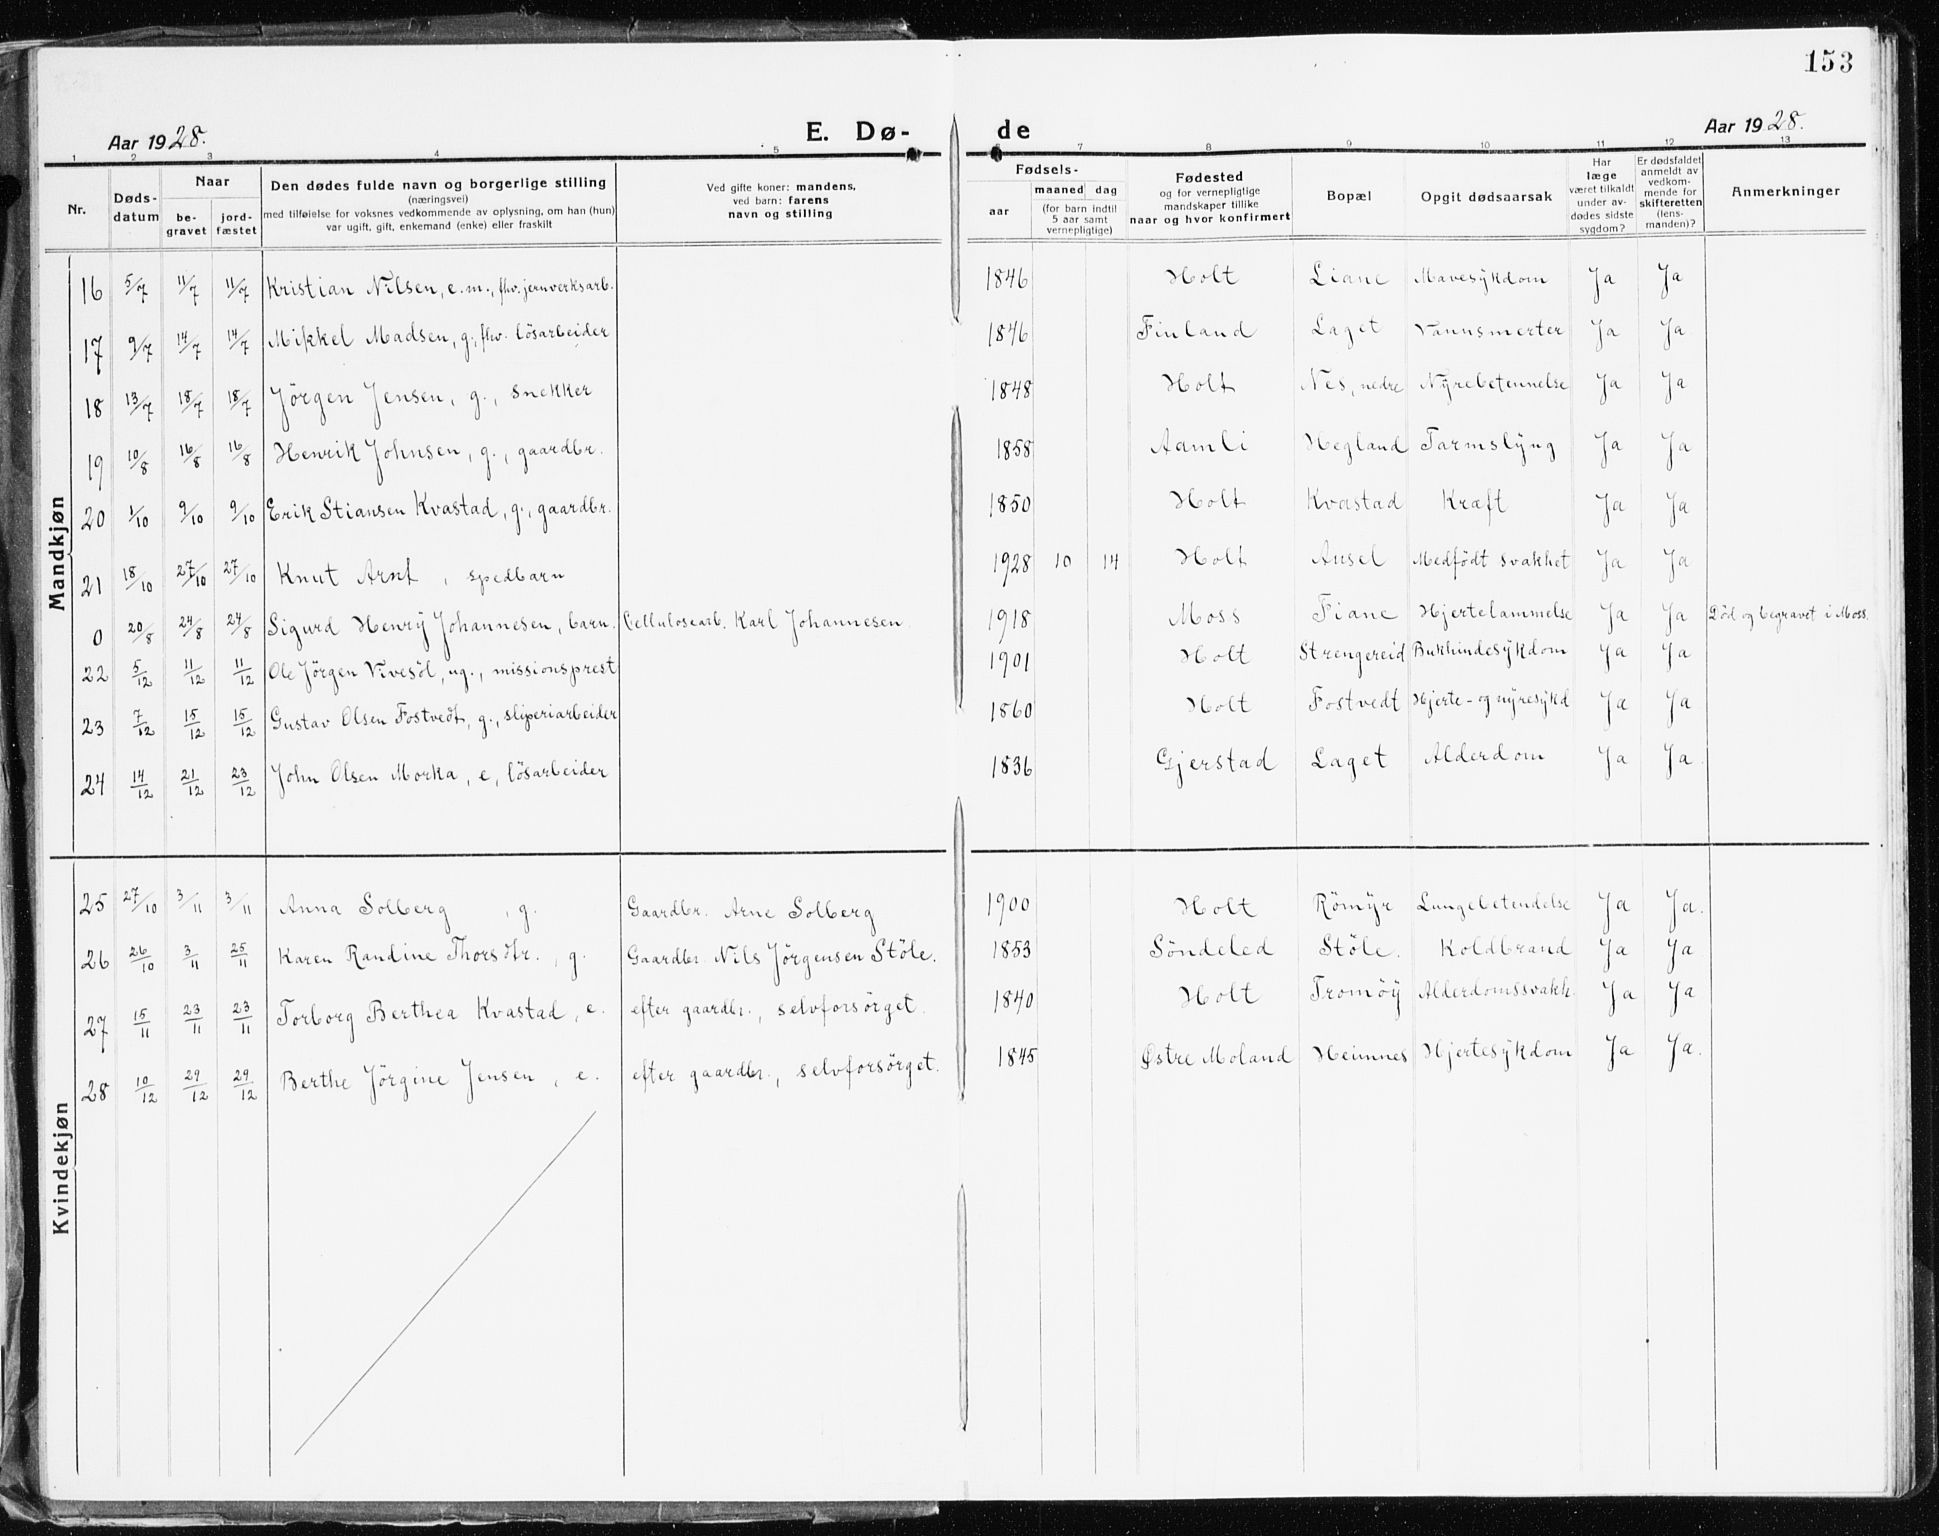 153
Aar 1928.
E. Dø-
de
Aar 1928.
1 2 3 4 5 7 8 9 10 11 12 13
Nr.
Døds-
datum
Naar
be-
gravet
jord-
fæstet
Den dødes fulde navn og borgerlige stilling
(næringsvei)
med tilføielse for voksnes vedkommende av oplysning, om han (hun)
var ugift, gift, enkemand (enke) eller fraskilt
Ved gifte koner: mandens,
ved barn: farens
navn og stilling
Fødsels-
aar
maaned dag
(for barn indtil
5 aar samt
vernepligtige)
Fødested
og for vernepligtige
mandskaper tillike
naar og hvor konfirmert
Bopæl
Opgit dødsaarsak
Har
læge
været tilkaldt
under av-
dødes sidste
sygdom?
Er dødsfaldet
anmeldt av
vedkom-
mende for
skifteretten
(lens-
manden)?
Anmerkninger
Mandkjøn
16 5/7 11/7 11/7 Kristian Nilsen, e.m., fhv. jernverksarb. 1846 Holt Liane Mavesykdom Ja Ja
17 9/7 14/7 14/7 Mikkel Madsen, g., fhv. lösarbeider 1846 Finland Laget Vannsmerter Ja Ja
18 13/7 18/7 18/7 Jörgen Jensen, g., snekker 1848 Holt Nes, nedre Nyrebetennelse Ja Ja
19 10/8 16/8 16/8 Henrik Johnsen, g., gaardbr. 1858 Aamli Hegland Tarmslyng Ja Ja
20 1/10 9/10 9/10 Erik Stiansen Kvastad, g., gaardbr. 1850 Holt Kvastad Kræft Ja Ja
21 18/10 27/10 27/10 Knut Arnt, spedbarn 1928 10 14 Holt Ausel Medfödt svakhet Ja Ja
0 20/8 24/8 24/8 Sigurd Henry Johannesen, barn. Cellulosearb. Karl Johannesen. 1918 Moss Fiane Hjertelammelse Ja Ja Död og begravet i Moss.
22 5/12 11/12 11/12 Ole Jörgen Vivesöl, ug., missionsprest 1901 Holt Strengereid Bukhindesykdom Ja Ja
23 7/12 15/12 15/12 Gustav Olsen Fostvedt, g., sliperiarbeider 1860 Holt Fostvedt Hjerte- og nyresykd Ja Ja
24 14/12 21/12 23/12 John Olsen Morka, e, lösarbeider 1836 Gjerstad Laget Alderdom Ja Ja.
Kvindekjøn
25 27/10 3/11 3/11 Anna Solberg, g. Gaardbr. Arne Solberg 1900 Holt Römyr Lungebetendelse Ja Ja.
26 26/10 3/11 25/11 Karen Randine Thorsdtr., g. Gaardbr. Nils Jörgensen Stöle. 1853 Söndeled Stöle. Koldbrand Ja Ja
27 15/11 23/11 23/11 Torborg Berthea Kvastad, e. efter gaardbr., selvforsörget. 1840 Holt Tromöy Alderdomssvakh. Ja Ja
28 10/12 29/12 29/12 Berthe Jörgine Jensen, e. efter gaardbr., selvforsörget. 1845 Østre Moland Heimnes Hjertesykdom Ja Ja.